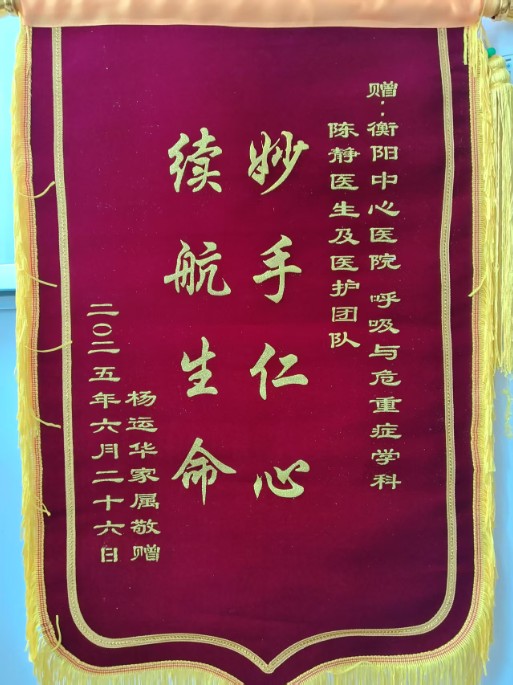 赠：衡阳中心医院 呼吸与危重症学科
陈静医生及医护团队
妙手仁心
续航生命
杨运华家属敬赠
二〇二五年六月二十六日